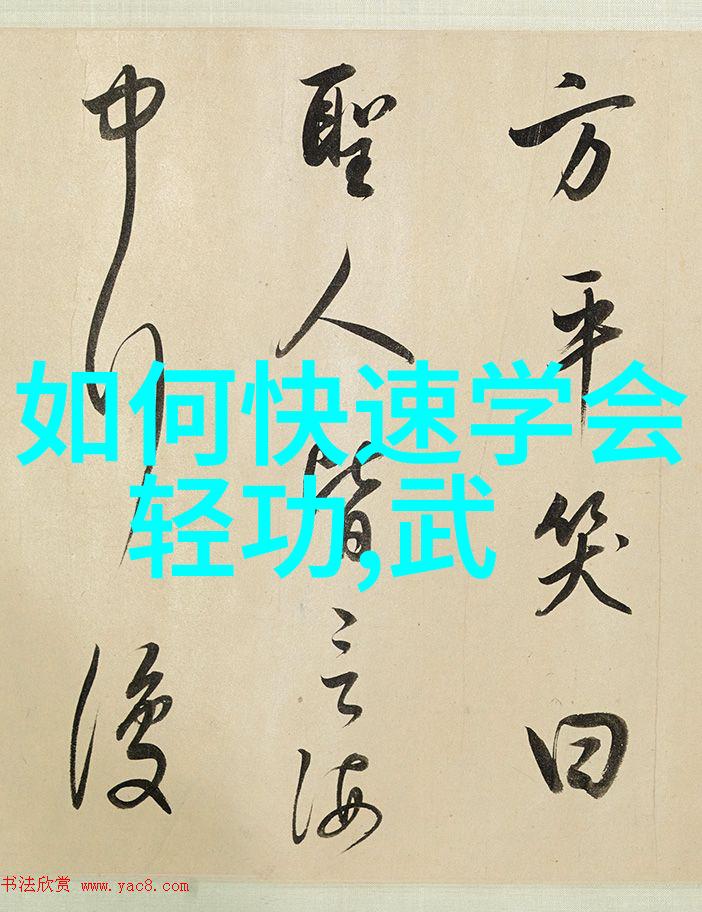 方平笑曰
聖人皆言海
中行復
如何快速学会
轻功,武
书法欣赏 www.yac8.com